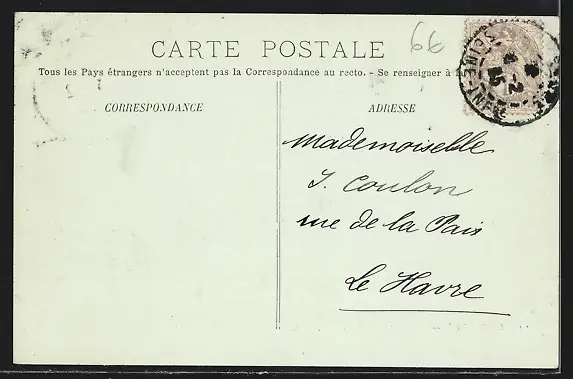 CARTE POSTALE
66
Tous les Pays étrangers n'acceptent pas la Correspondance au recto. - Se renseigner à la
CORRESPONDANCE
ADRESSE
Mademoiselle
J. Coulon
rue de la Paix
Le Havre